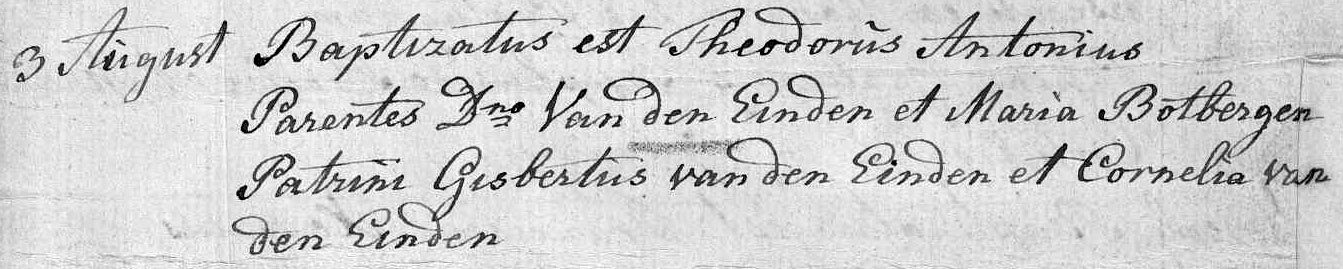 3 August Baptizatus est Theodorus Antonius
Parentes Dno Van den Einden et Maria Botbergen
Patrini Gisbertus van den Einden et Cornelia van
den Einden